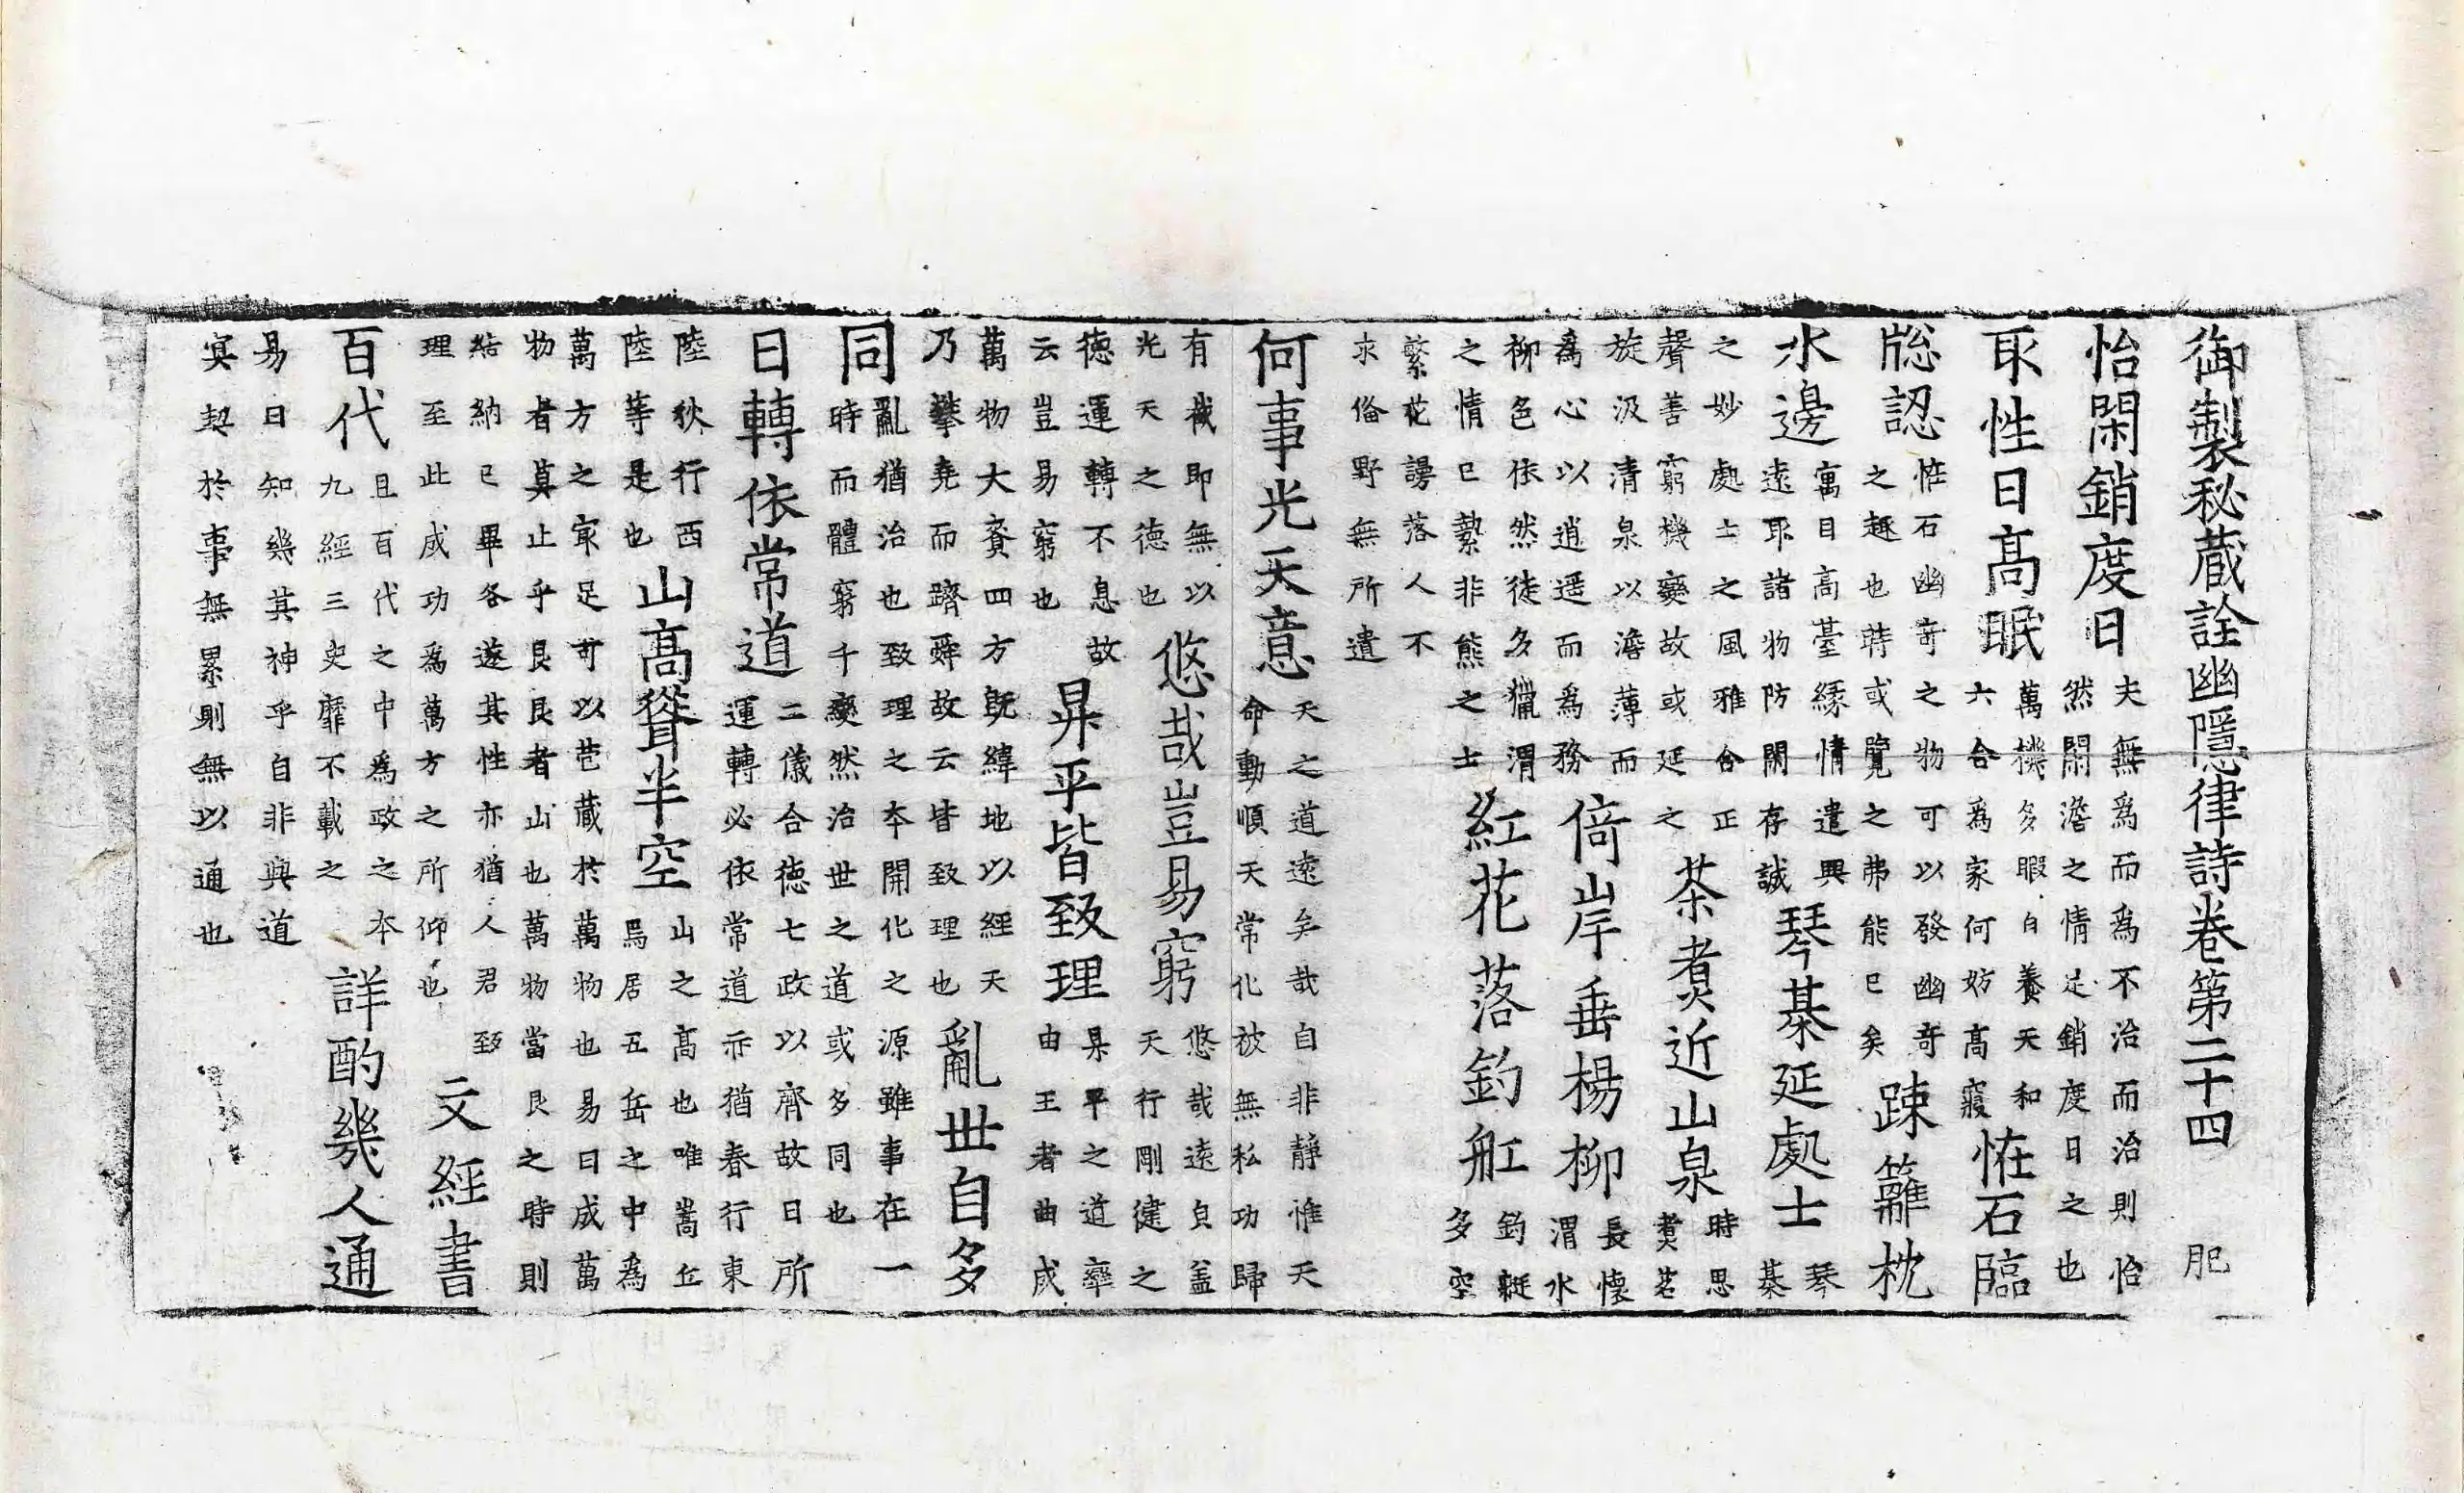 御製秘蔵詮幽隱律詩卷第二十四　肥
怡閑銷度日夫無爲而爲不治而治則怡然閑澹之情足銷度日之也
取性日高眠萬機多暇自養天和六合爲家何妨高寢恠石臨
牕認恠石幽奇之物可以發幽奇之趣也時或覽之弗能已矣踈籬枕
水邊寓目高臺緣情遣興遠取諸物防閑存誠琴棊延處士琴棊
之妙處士之風雅合正聲善窮機變故或延之茶煮近山泉時思煮茗
旋汲清泉以澹薄而爲心以逍遥而爲務倚岸垂楊柳長懷渭水
柳色依然徒多獵渭之情已縶非熊之士紅花落釣舡釣艇多空
繁花謾落人不求倫野無所遺
何事光天意天之道遠矣哉自非靜惟天命動順天常化被無私功歸
有截即無以光天之德也悠哉豈易窮悠哉遠貞盖天行剛健之
德運轉不息故云豈易窮也昇乎皆致理昇平之道率由王者曲成
萬物大賚四方既緯地以經天乃攀堯而躋舜故云皆致理也亂世自多
同亂猶治也致理之本開化之源雖事在一時而體窮千變然治世之道或多同也
日轉依常道二儀合德七政以齊故日所運轉必依常道亦猶春行東
陸秋行西陸等是也山高聳半空山之高也唯嵩丘焉居五岳之中爲
萬方之冣足可以苞蔵於萬物也易曰成萬物者莫止乎艮艮者山也萬物當艮之時則
結納已畢各遂其性亦猶人君致理至此成功爲萬方之所仰也文經書
百代且百代之中爲政之本九經三史靡不載之詳酌幾人通
易曰知幾其神乎自非與道冥契於事無累則無以通也